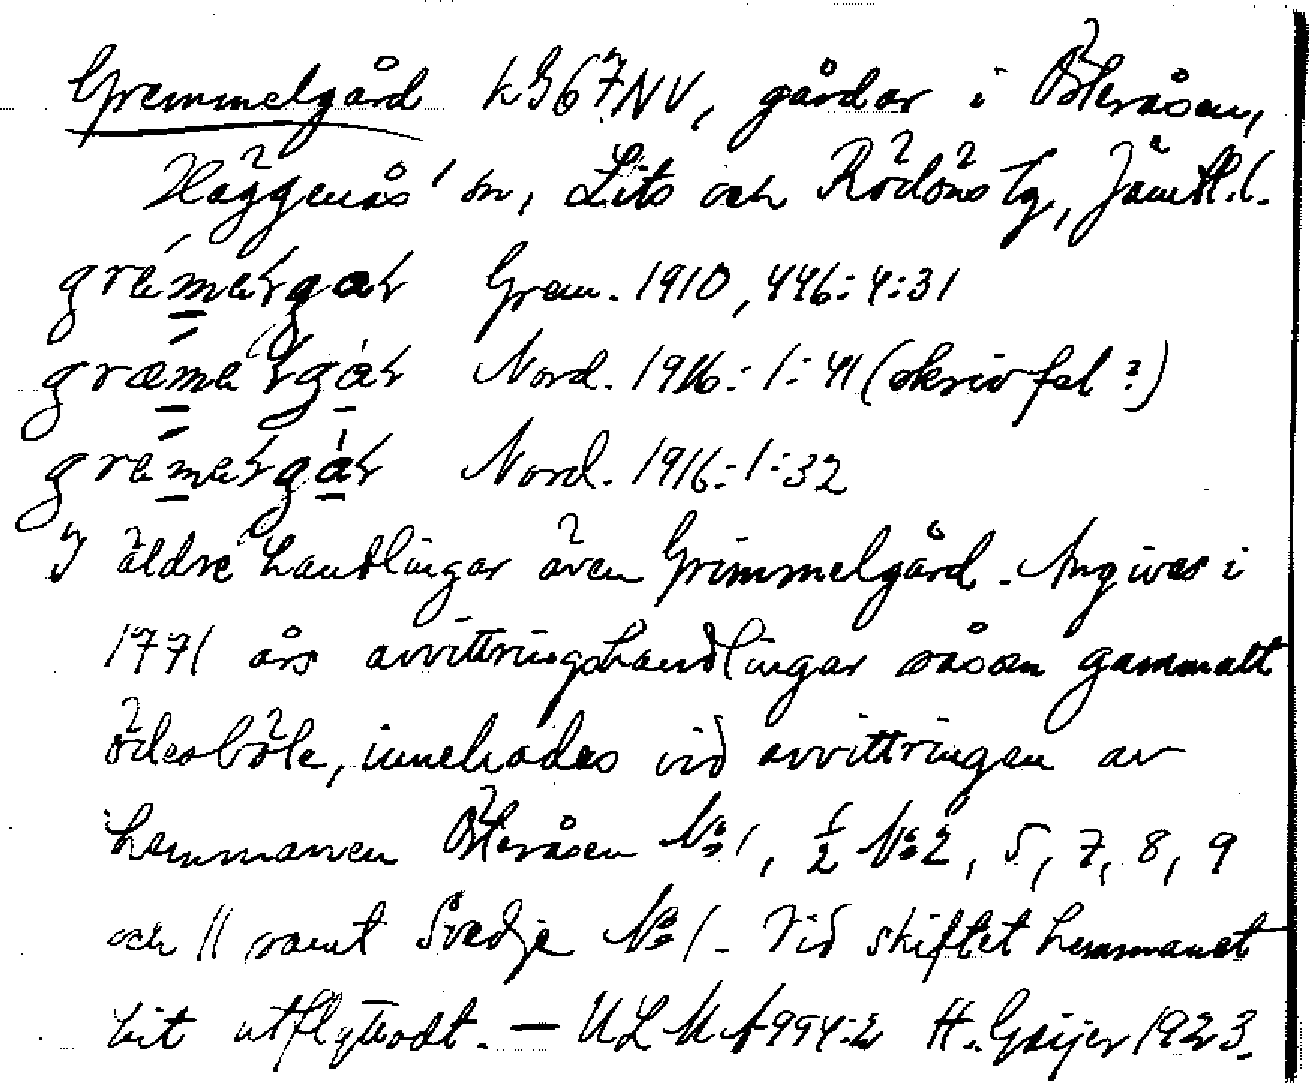 Gremmelgård kB67NV, gårdar i Österåsen,
Häggenås' sn, Lits och Rödöns tg, Jämtl. l.
Gram. 1910, 446:4:31
Nord. 1916:1:41 (skrivfel?)
Nord. 1916:1:32
I äldre handlingar även Grimmelgård. Angives i
1771 års avvittringshandlingar såsom gammalt
ödesböle, innehades vid avvittringen av
hemmanen Österåsen No 1, 1/2 No 2, 5, 7, 8, 9
och 11 samt Svedje No 1. Vid skiftet hemmanet
hit utflyttadt. — ULMA 994:2 H. Geijer 1923.